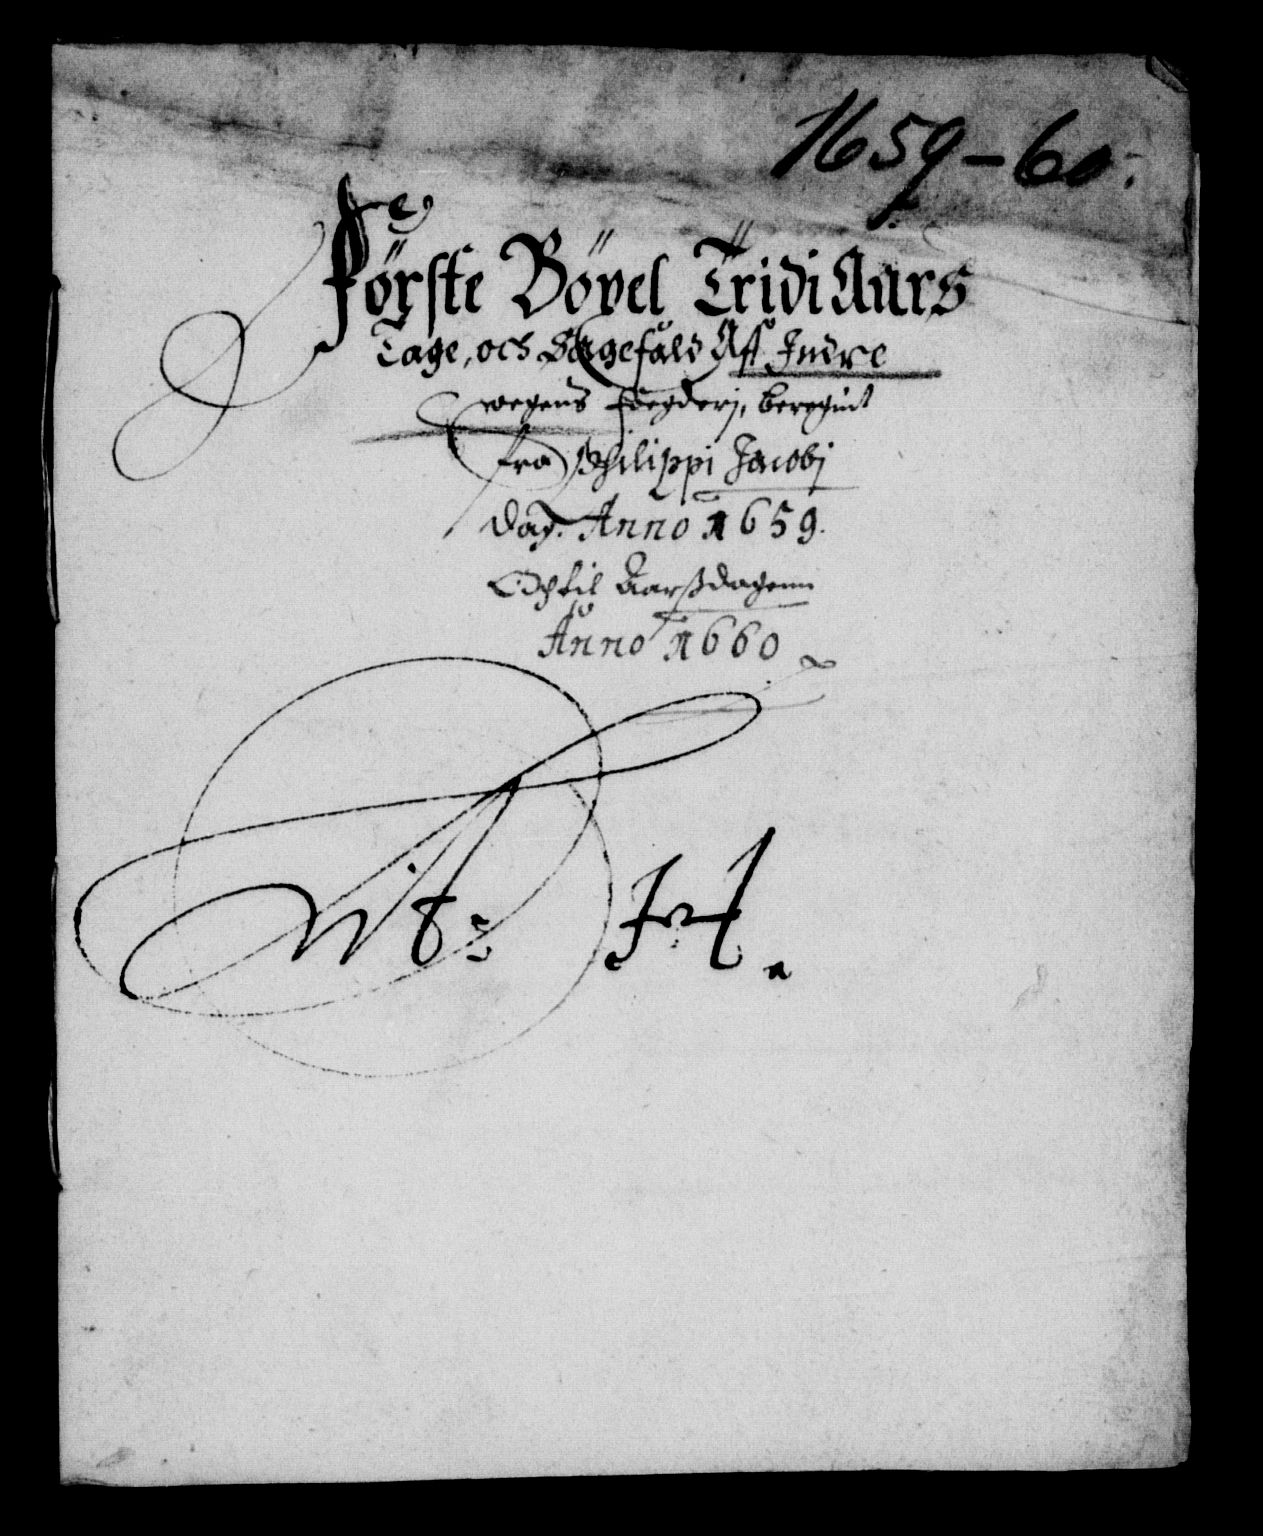 1659-60.
Förste Böxel Tridi Aars
Tage, och Sagefald Aff Indre
wegens foegderj, beregnit
fra Philippi Jacobj
dag. Anno 1659.
Och til Aarßdagenn
Anno 1660
N: 8: